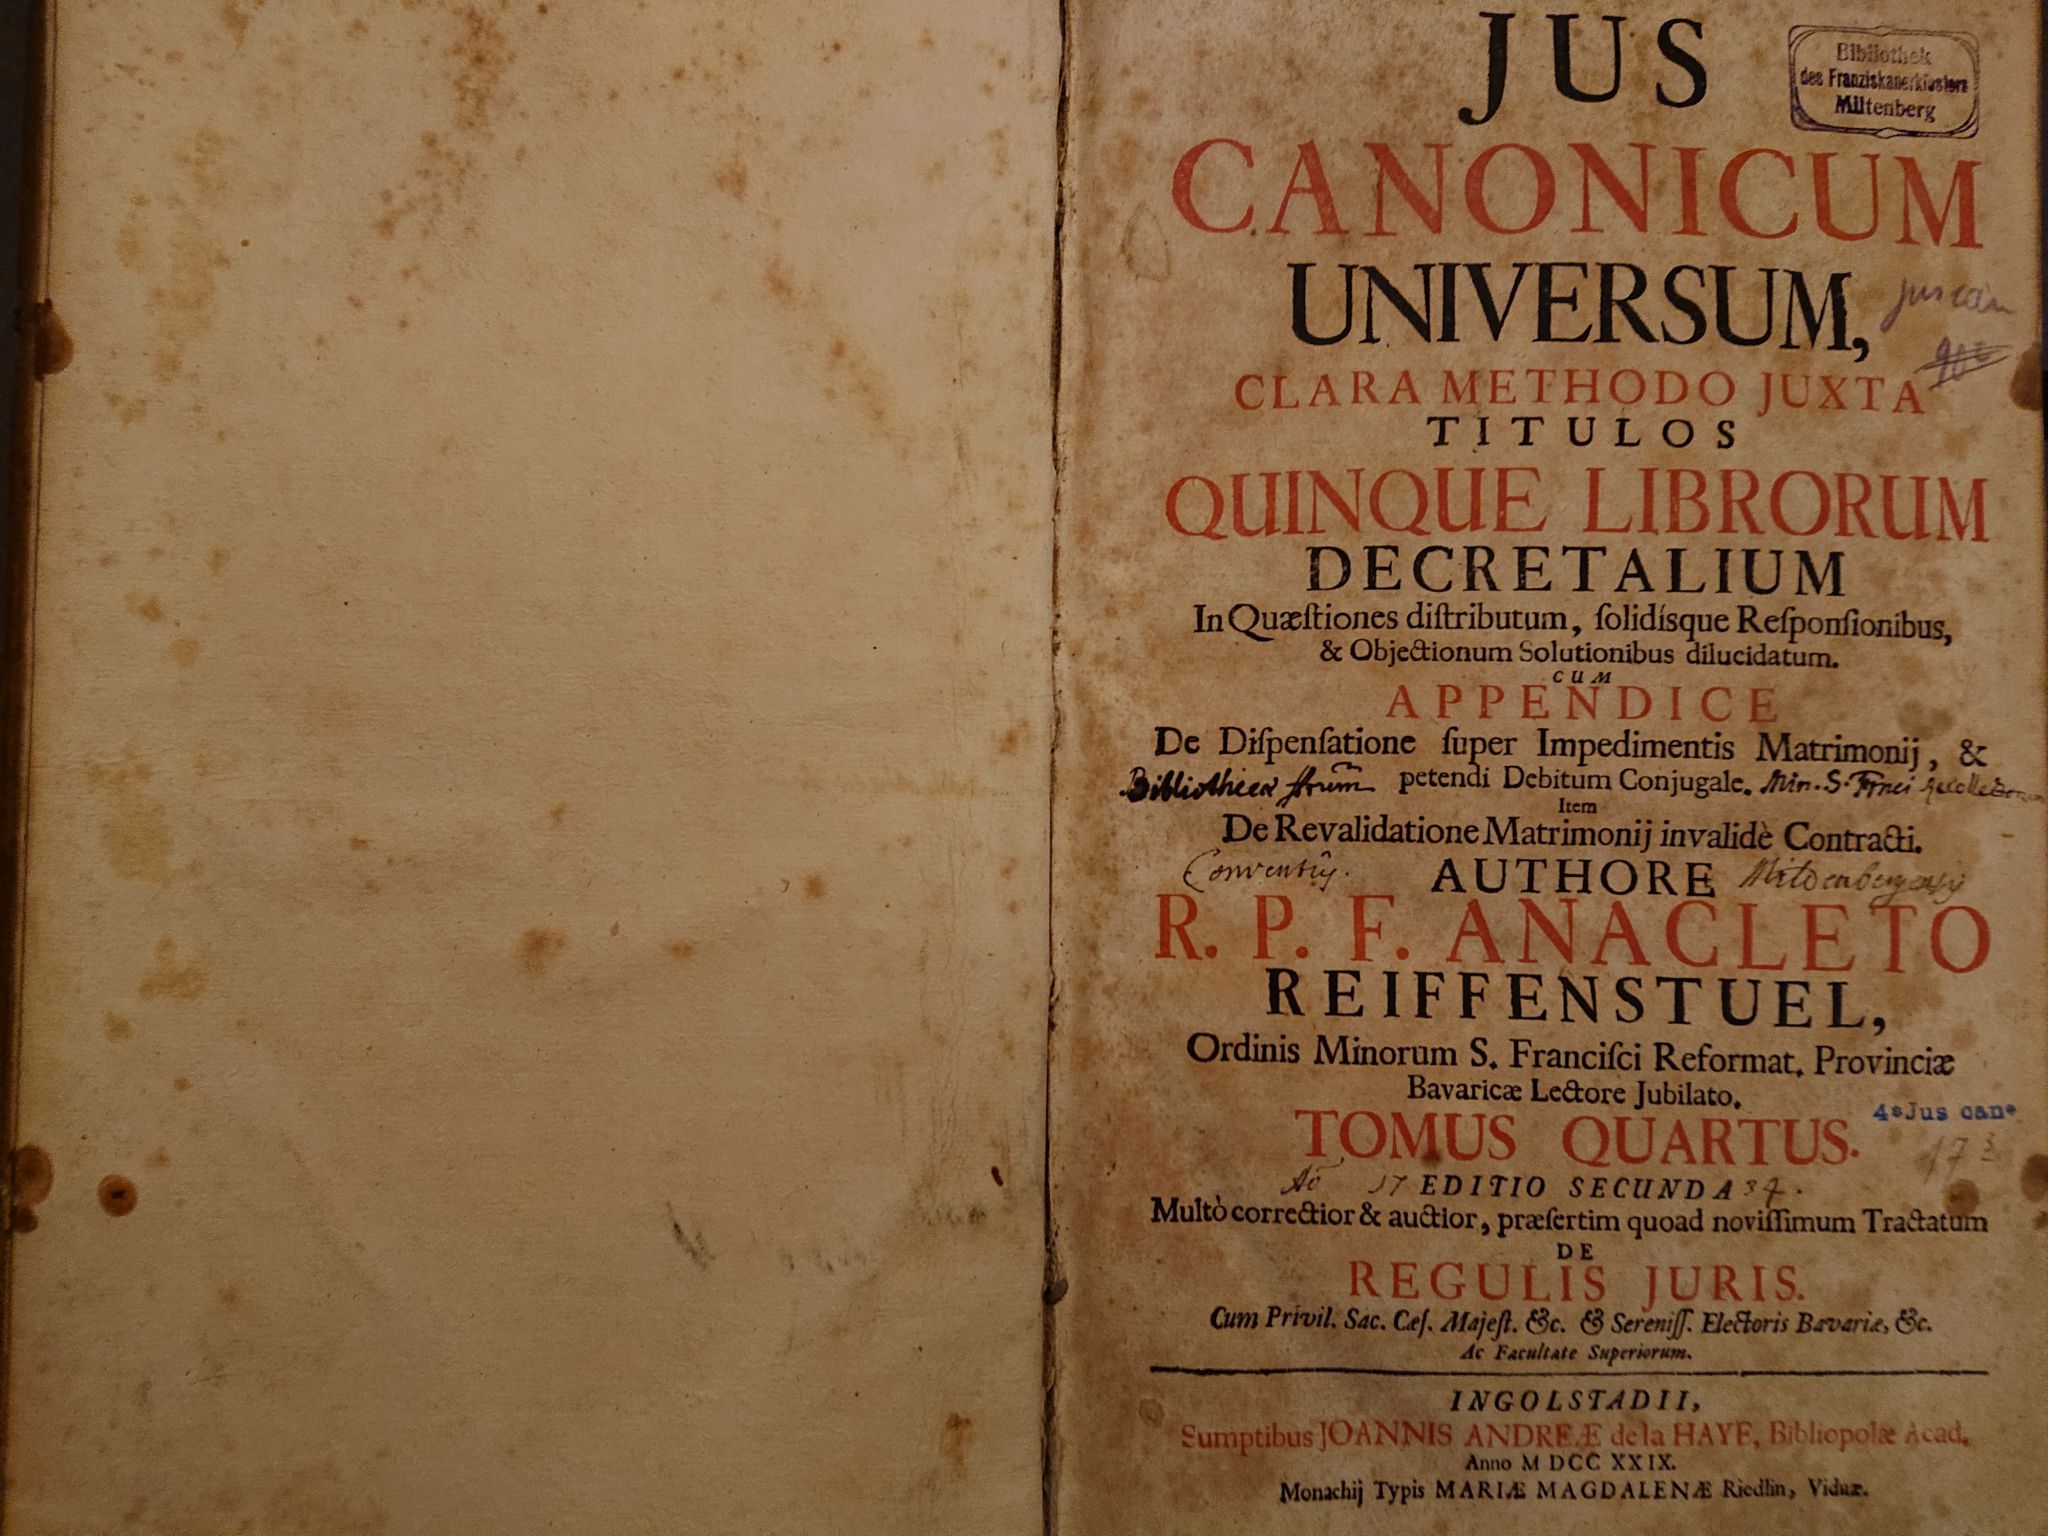 JUS
Bibliothek
des Franziskanerklosters
Miltenberg
CANONICUM
UNIVERSUM,
Jus can
CLARA METHODO JUXTA
TITULOS
QUINQUE LIBRORUM
DECRETALIUM
In Quæſtiones diſtributum, ſolidísque Reſponſionibus,
& Objectionum Solutionibus dilucidatum.
CUM
APPENDICE
De Diſpenſatione ſuper Impedimentis Matrimonij, &
petendi Debitum Conjugale. Min. S.
Item
De Revalidatione Matrimonij invalidè Contracti.
AUTHORE
R. P. F. ANACLETO
REIFFENSTUEL,
Ordinis Minorum S. Franciſci Reformat. Provinciæ
Bavaricæ Lectore Jubilato.
4° Jus can.
TOMUS QUARTUS.
Aõ 17 EDITIO SECUNDA 34.
Multò correctior & auctior, præſertim quoad noviſſimum Tractatum
DE
REGULIS JURIS.
Cum Privil. Sac. Cæſ. Majeſt. &c. & Sereniſſ. Electoris Bavariæ, &c.
Ac Facultate Superiorum.
INGOLSTADII,
Sumptibus JOANNIS ANDREÆ de la HAYE, Bibliopolæ Acad.
Anno M DCC XXIX.
Monachij Typis MARIÆ MAGDALENÆ Riedlin, Viduæ.